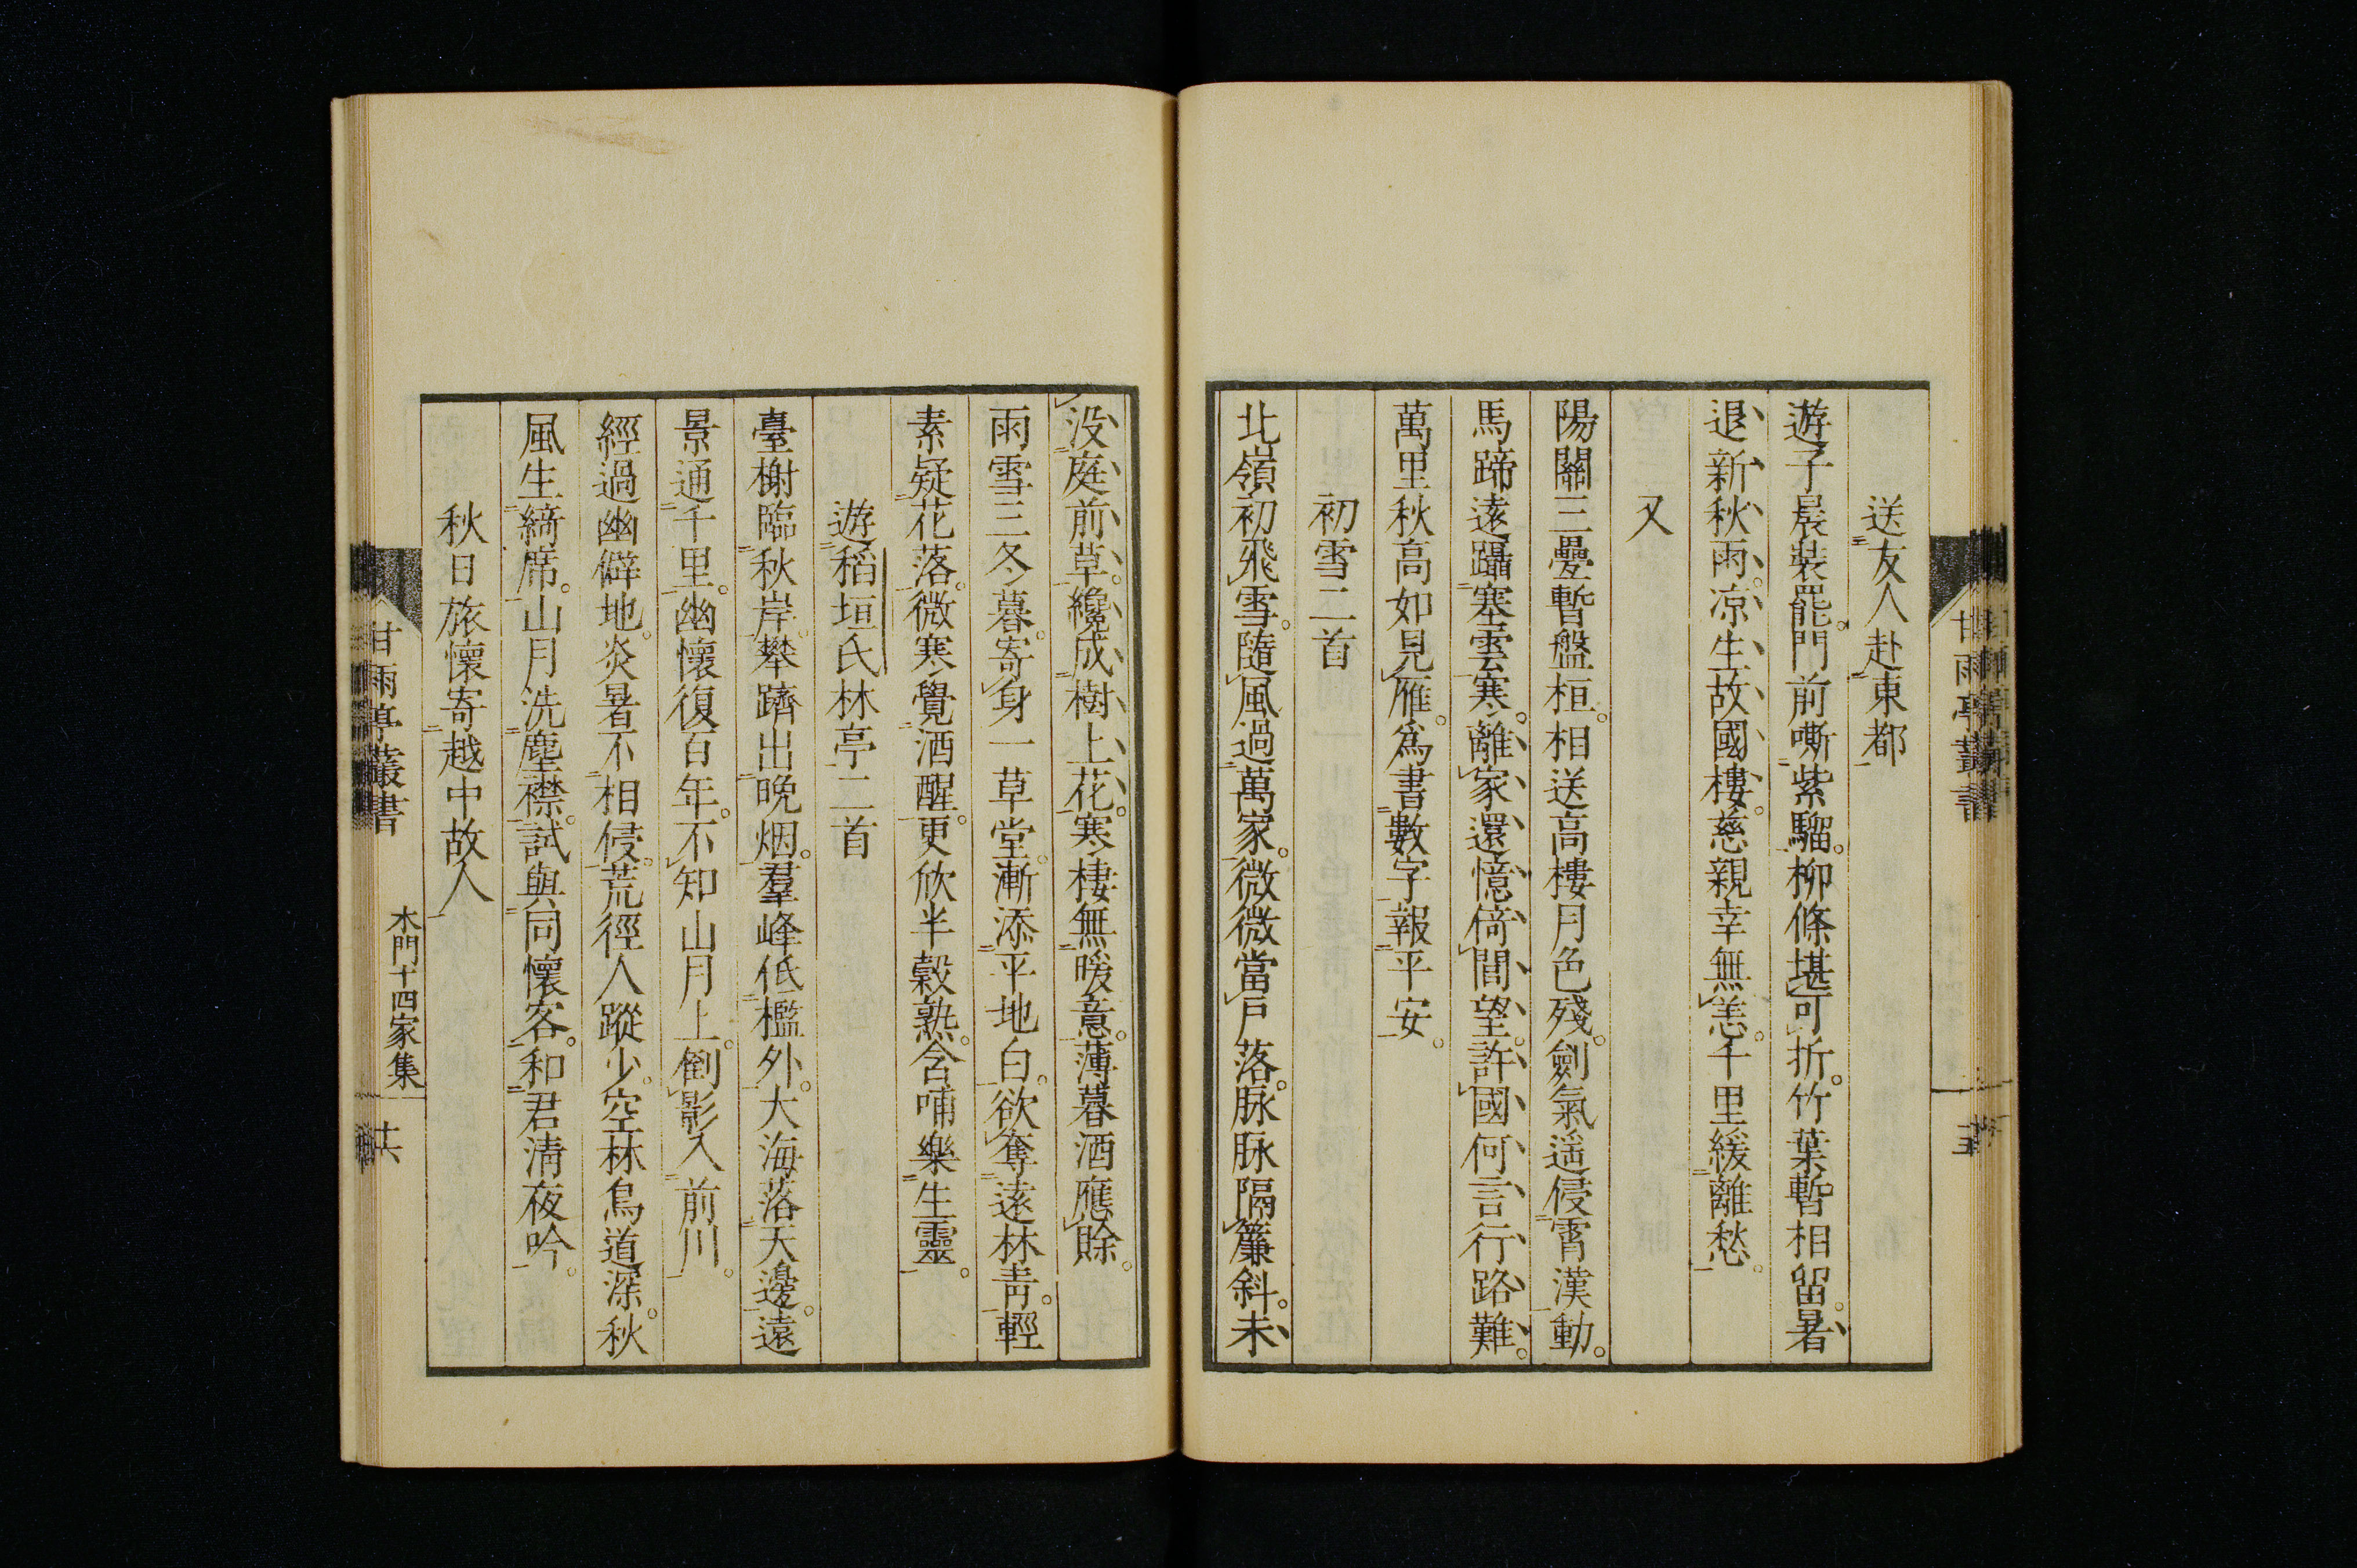 送友人赴東都
遊子晨裝罷。門前嘶紫騮。柳條堪可折。竹葉暫相留。暑
退新秋雨。凉生故國樓。慈親幸無恙。千里緩離愁。
又
陽關三疊暫盤桓。相送高樓月色殘。劍氣遥侵霄漢動。
馬蹄遠躡塞雲寒。離家還憶倚閭望。許國何言行路難。
萬里秋高如見雁。爲書數字報平安。
初雪二首
北嶺初飛雪。隨風過萬家。微微當戸落。脉脉隔簾斜。未
没庭前草。纔成樹上花。寒棲無暖意。薄暮酒應賒。
雨雪三冬暮。寄身一草堂。漸添平地白。欲奪遠林靑。輕
素疑花落。微寒覺酒醒。更欣半穀熟。含哺樂生靈。
遊稻垣氏林亭二首
臺榭臨秋岸。攀躋出晩烟。羣峰低檻外。大海落天邊。遠
景通千里。幽懷復百年。不知山月上。倒影入前川。
經過幽僻地。炎暑不相侵。荒徑人蹤少。空林鳥道深。秋
風生綺席。山月洗塵襟。試與同懷客。和君清夜吟。
秋日旅懷寄越中故人
甘雨亭叢書
木門十四家集
十六
甘雨亭叢書